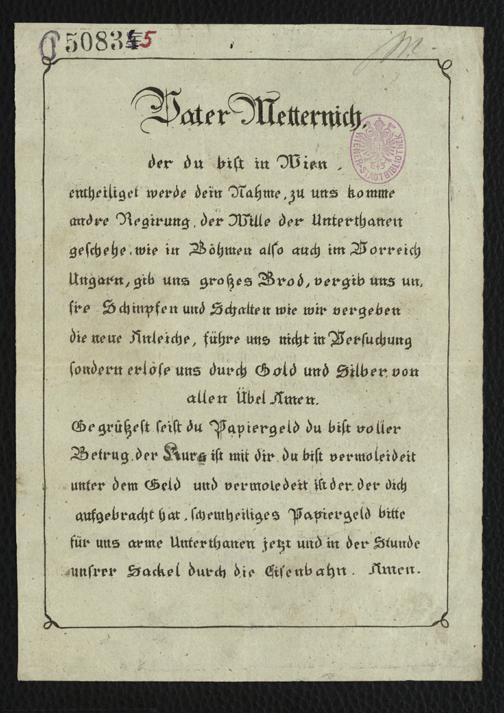 50834 5
Vater Metternich,
der du bist in Wien,
WIENER STADTBIBLIOTHEK
entheiliget werde dein Nahme, zu uns komme
andre Regirung, der Wille der Unterthanen
geschehe, wie in Böhmen also auch im Vorreich
Ungarn, gib uns großes Brod, vergib uns un,
sre Schinpfen und Schalten wie wir vergeben
die neue Anleiche, führe uns nicht in Versuchung
sondern erlöse uns durch Gold und Silber von
allen Übel Amen.
Gegrüßest seist du Papiergeld du bist voller
Betrug, der Kurs ist mit dir, du bist vermoleideit
unter dem Geld und vermoledeit ist der, der dich
aufgebracht hat, scheinheiliges Papiergeld bitte
für uns arme Unterthanen jetzt und in der Stunde
unsrer Sackel durch die Eisenbahn. Amen.